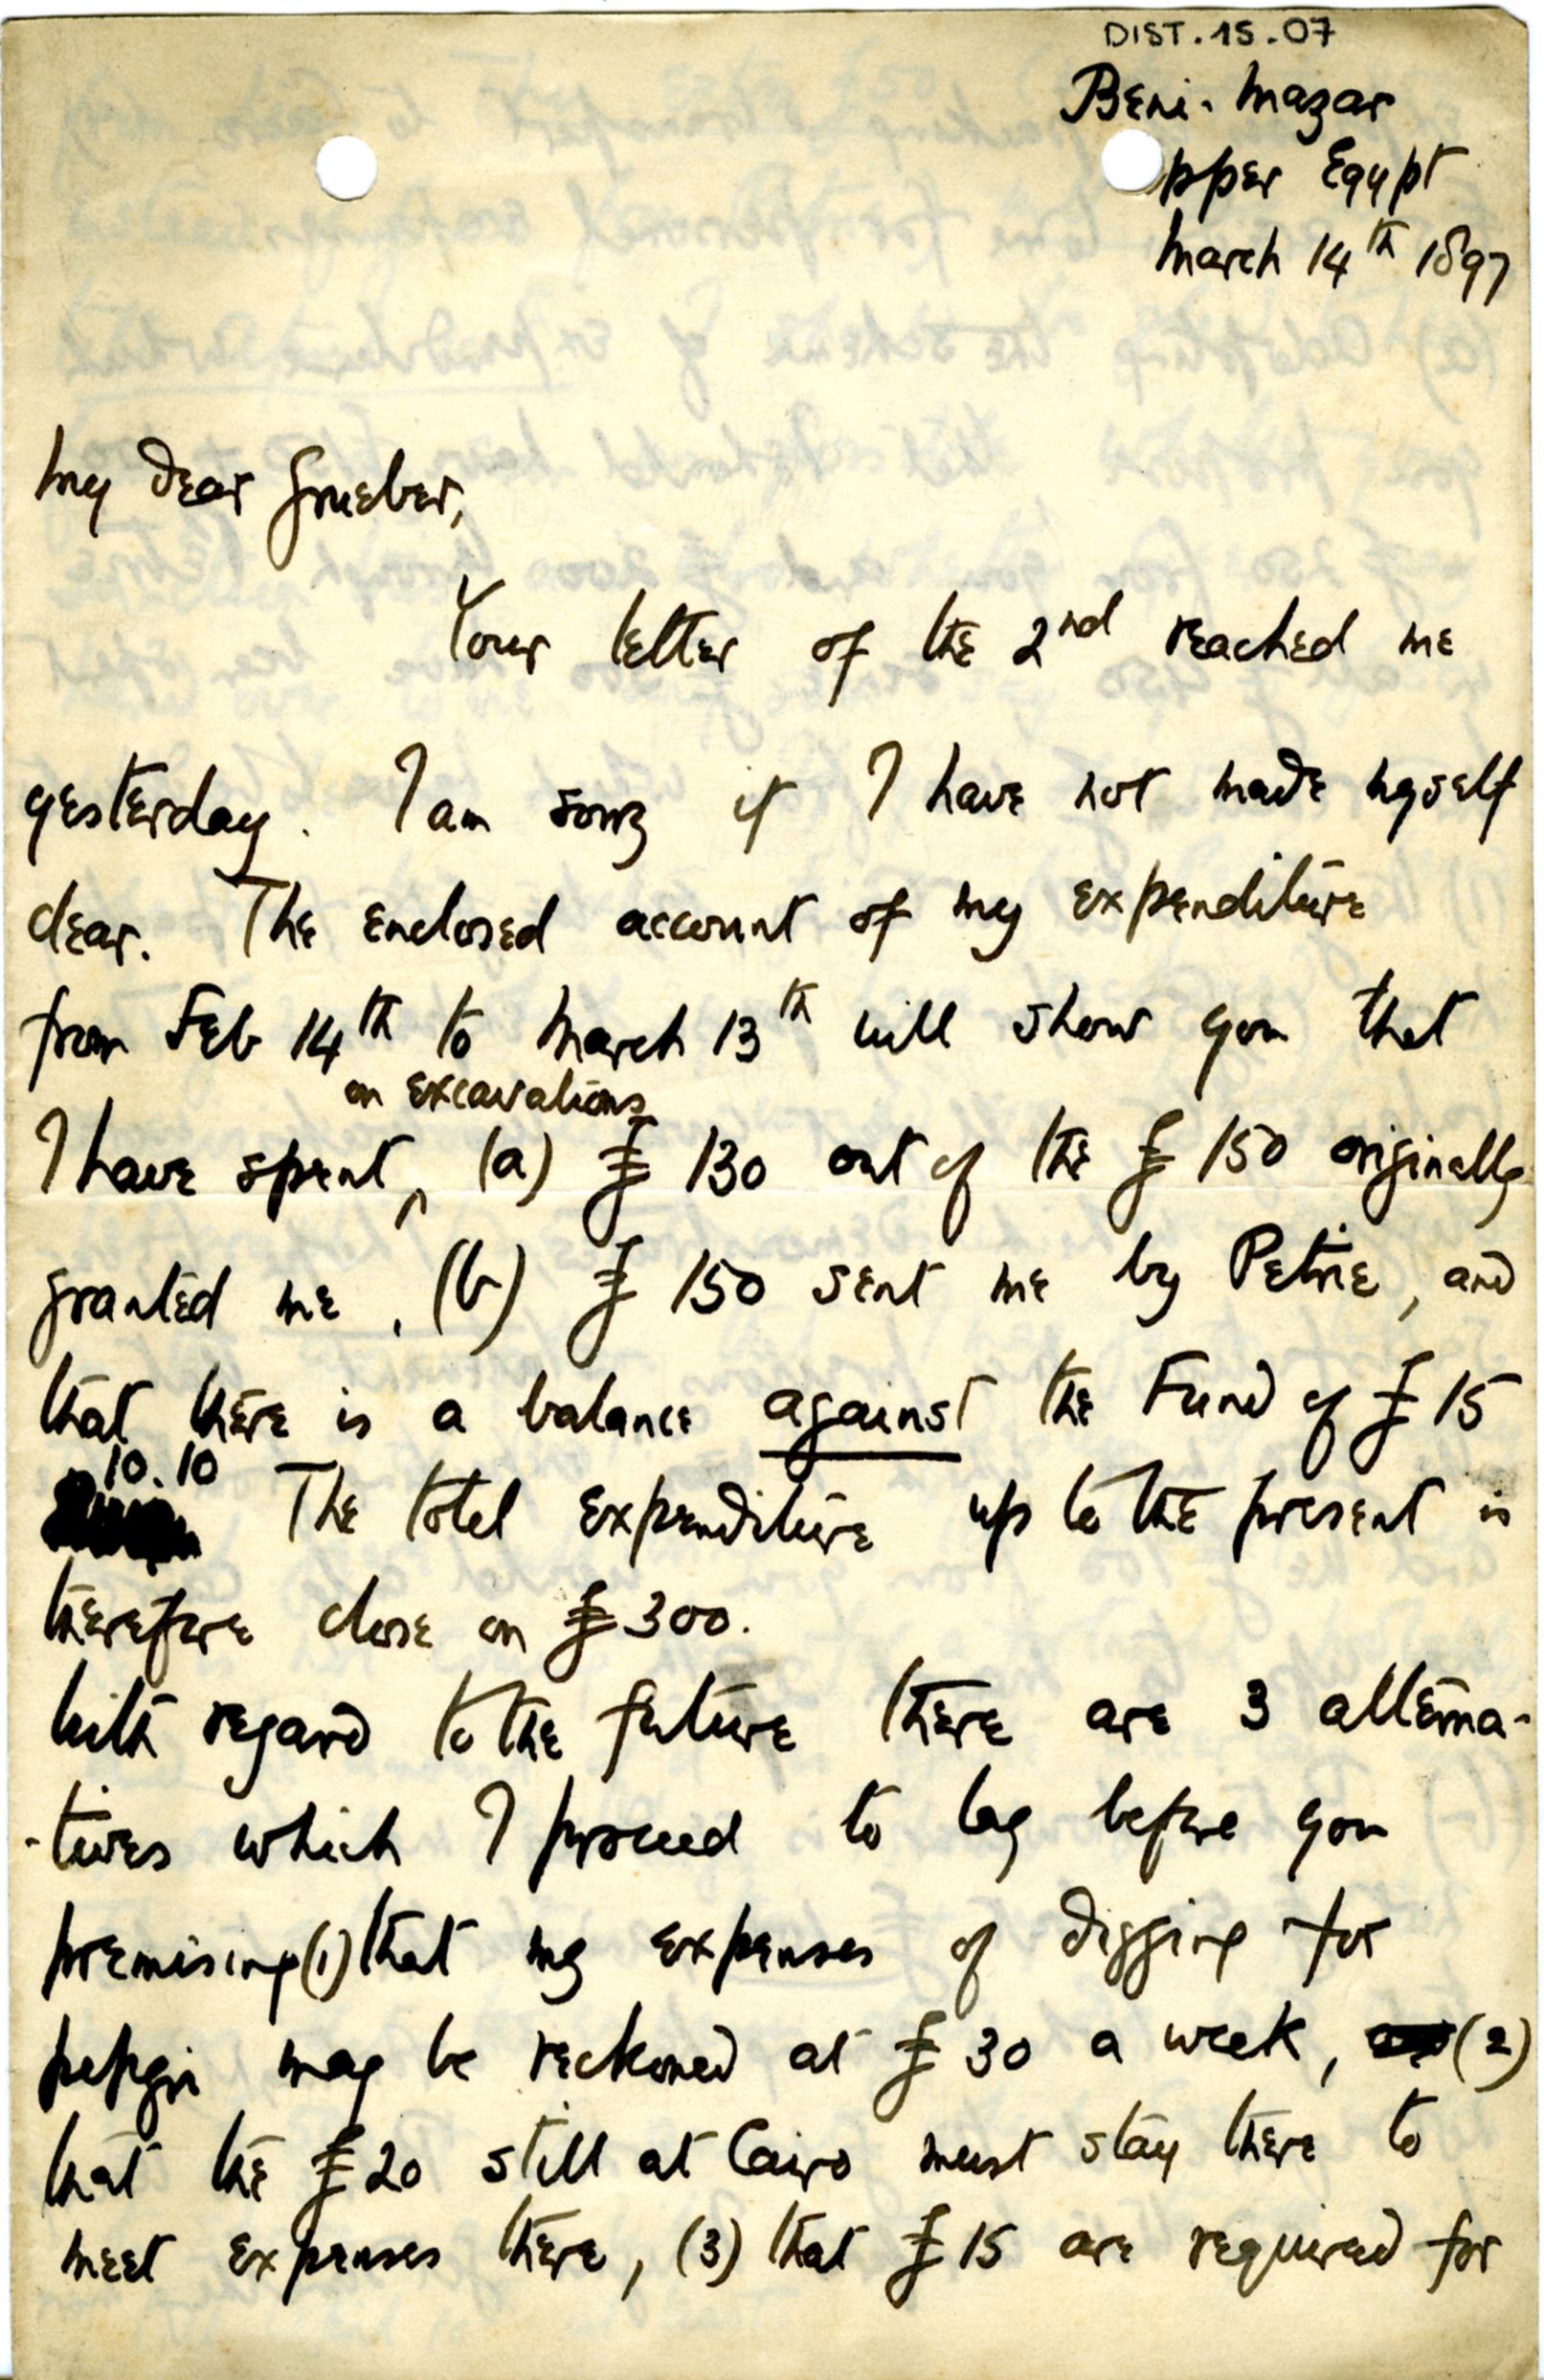 DIST. 15.07
Beni-Mazar
pper Egypt
March 14th 1897
My dear Grueber,
Your letter of the 2nd reached me
yesterday. I am sorry if I have not made myself
clear. The enclosed account of my expenditure
from Feb 14th to March 13th will show you that
on excavations
I have spent ^ (a) £ 130 out of the £ 150 originally
granted me, (b) £ 150 sent me by Petrie, and
that there is a balance against the Fund of £ 15
10.10
The total expenditure up to the present is
therefore close on £ 300.
With regard to the future there are 3 alterna-
-tives which I proceed to lay before you
premising (1) that my expenses of digging for
papyri may be reckoned at £ 30 a week, (2)
that the £ 20 still at Cairo must stay there to
meet expenses there, (3) that £ 15 are required for